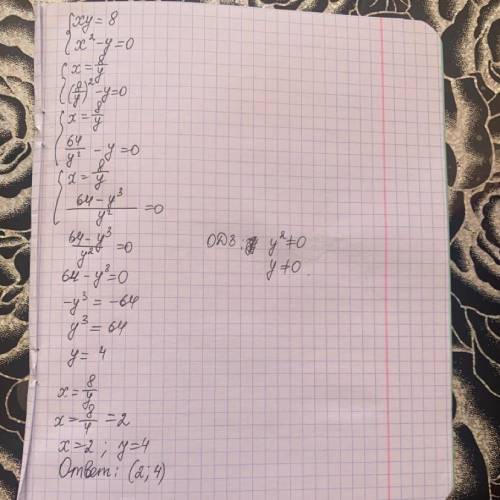 {xy = 8
{x² - y = 0
{x = 8/y
{(8/y)² - y = 0
{x = 8/y
{64/y² - y = 0
{x = 8/y
{(64 - y³)/y² = 0
(64 - y³)/y² = 0
ОДЗ: y² ≠ 0
y ≠ 0.
64 - y³ = 0
-y³ = -64
y³ = 64
y = 4
x = 8/y
x = 8/4 = 2
x = 2 ; y = 4
Ответ: (2; 4)